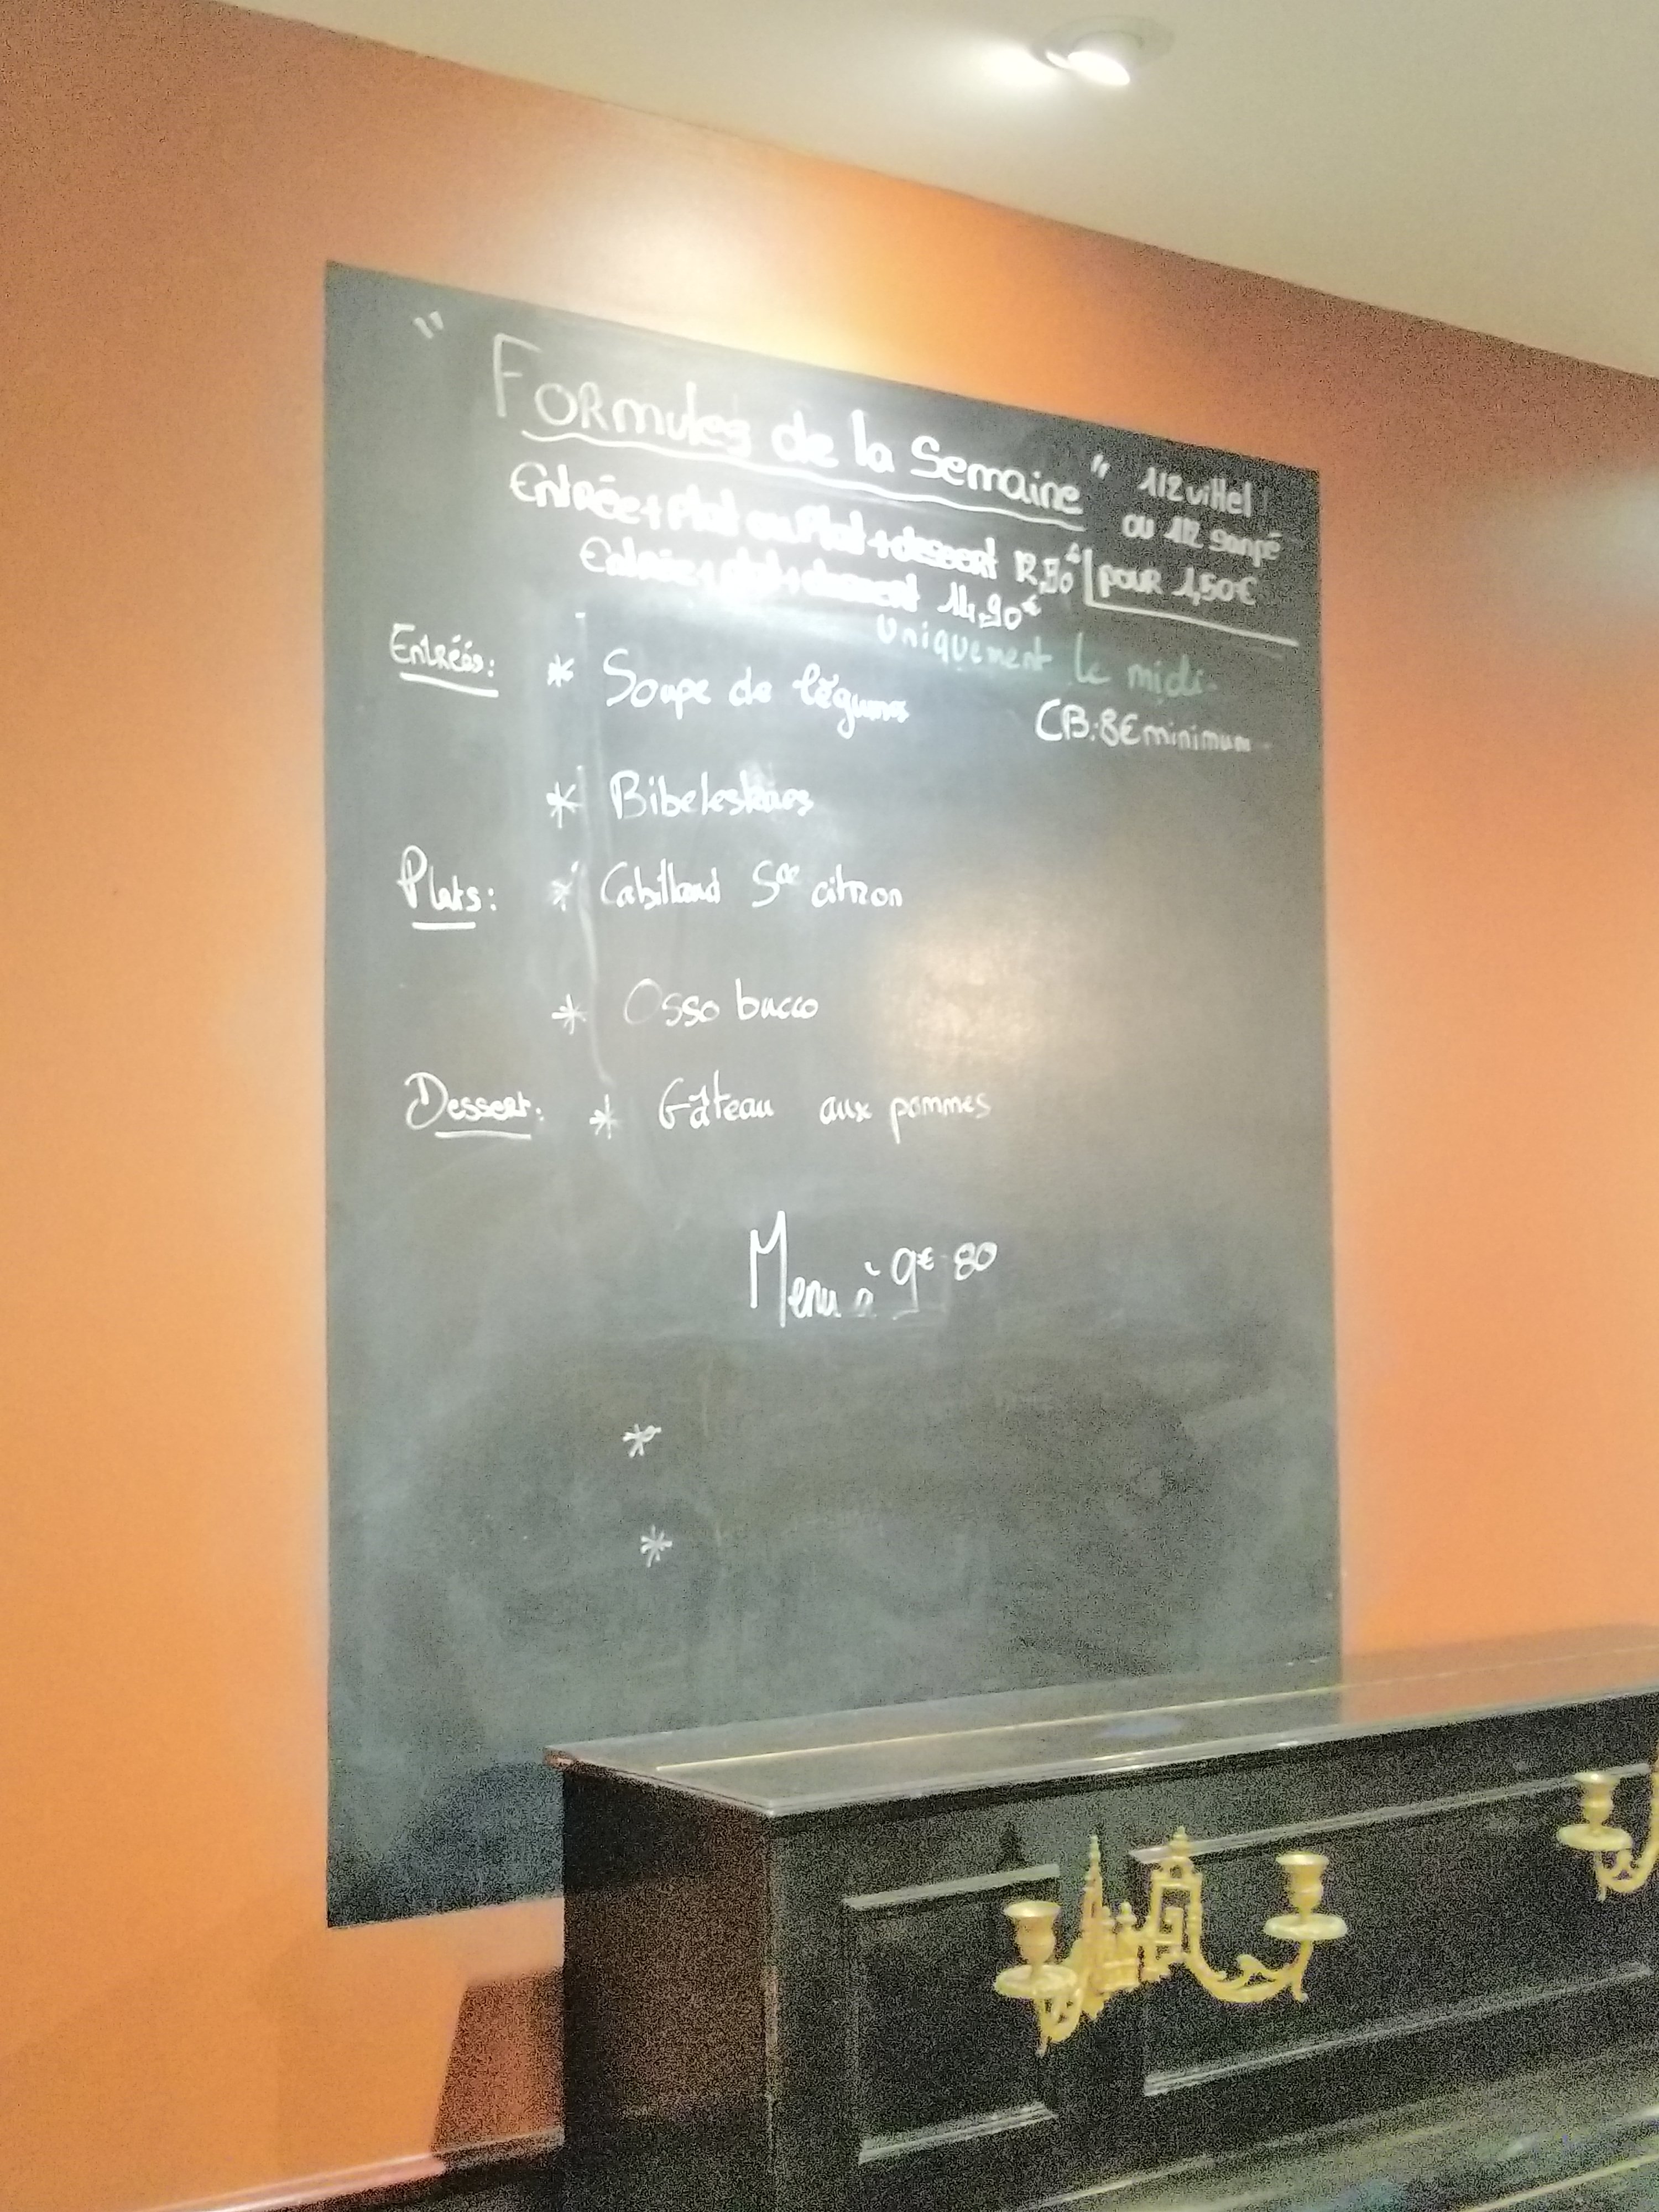 " Formules de la Semaine "
Entrée + Plat ou Plat + dessert 12,90€
Entrée + plat + dessert 14,90€
1/2 vittel
ou 1/2 sanpé
pour 1,50€
uniquement le midi
CB: 8€ minimum
Entrées: * Soupe de légumes
* Bibeleskaes
Plats: * Cabillaud Sce citron
* Osso bucco
Dessert: * Gâteau aux pommes
Menu à 9€80
*
*